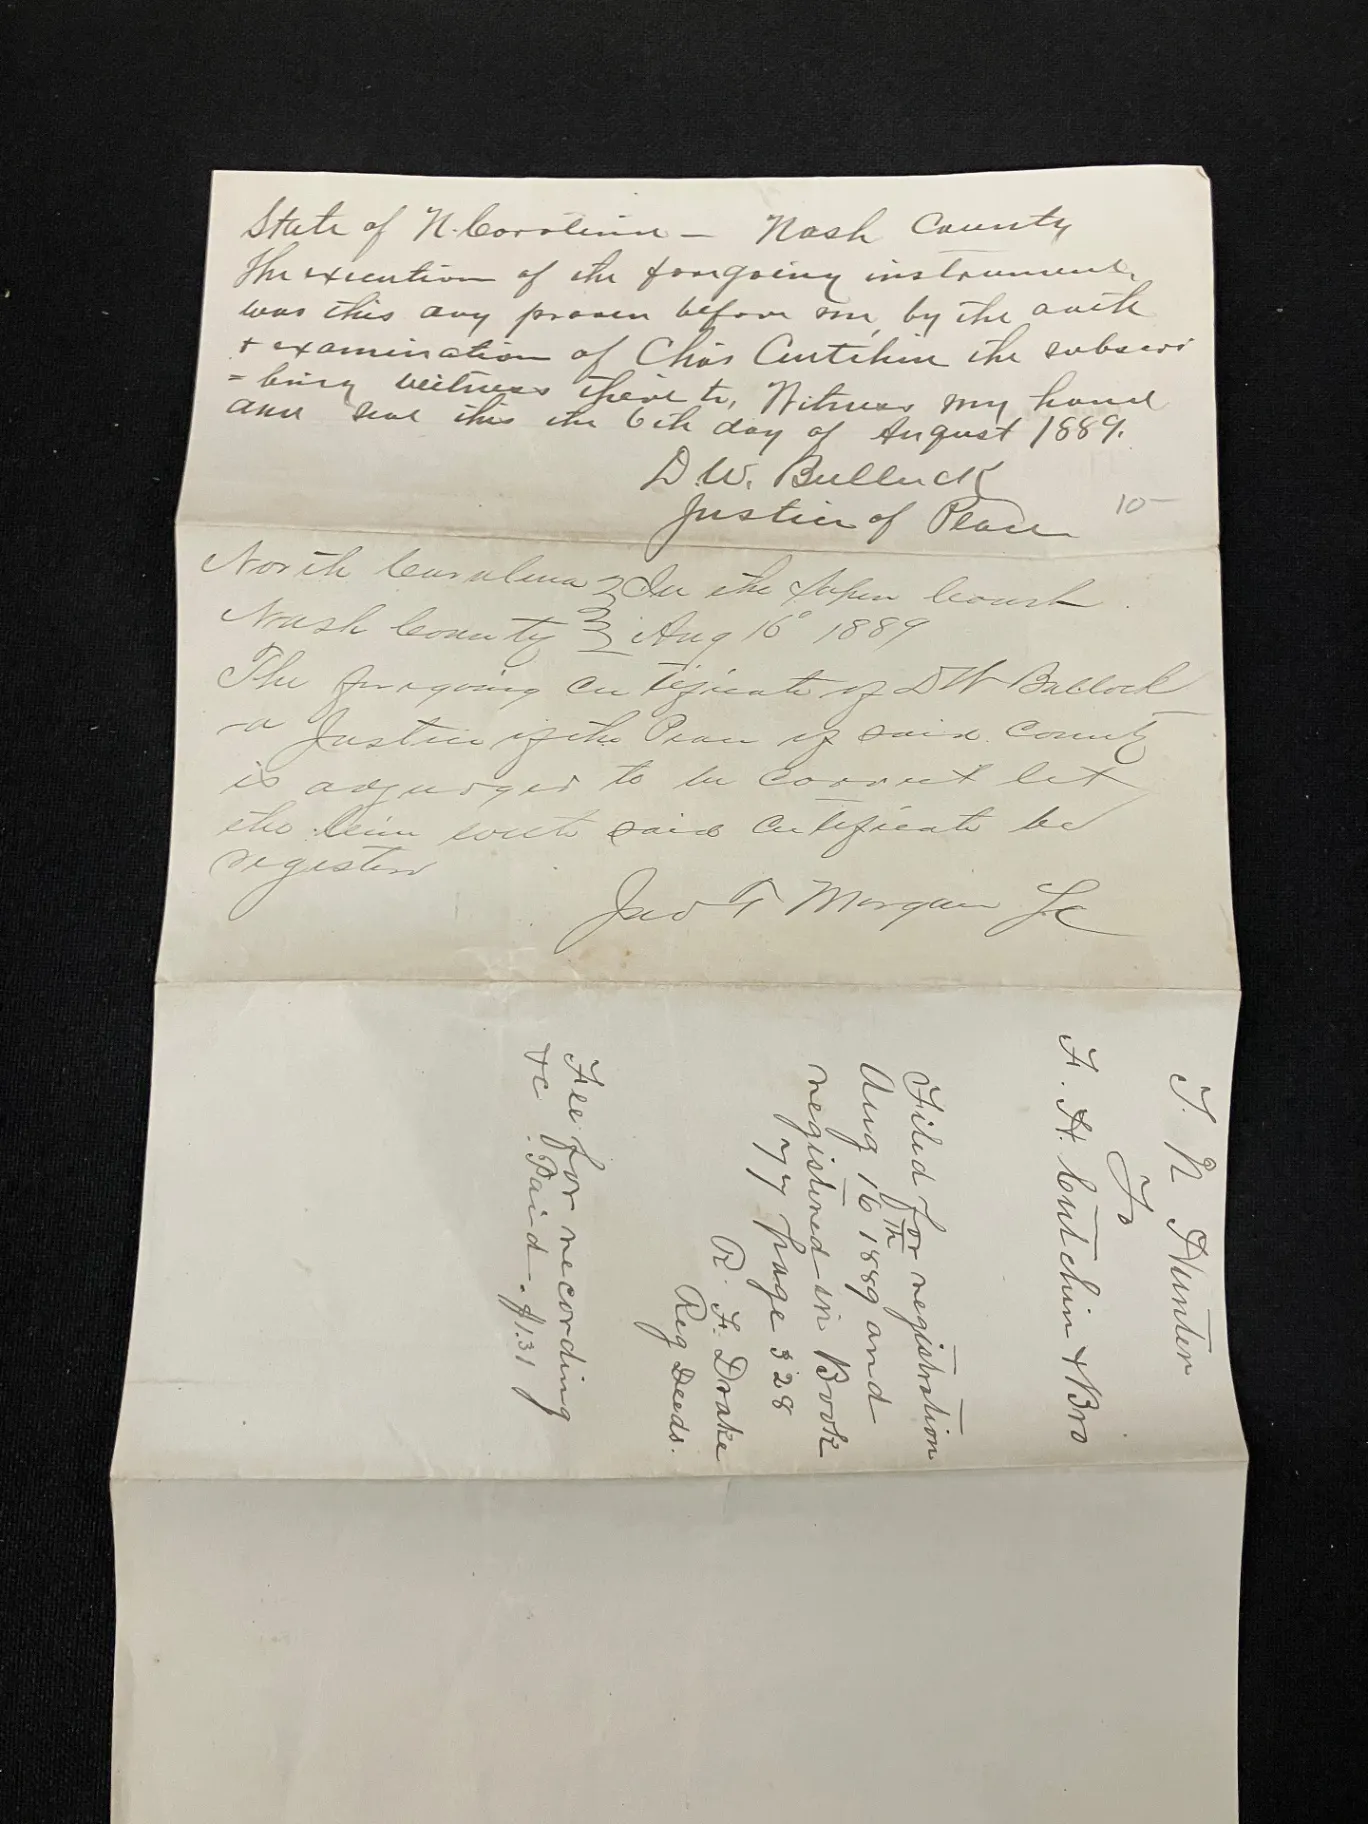 State of N. Carolina — Nash County
The execution of the foregoing instrument
was this day proven before me, by the oath
+ examination of Chas Cutchin the subscri
= bing witness thereto, Witness my hand
and seal this the 6th day of August 1889.
D. W. Bulluck
Justice of Peace
10-
North Carolina } In the Supr Court
Nash County } Aug 16° 1889
The foregoing certificate of D W Bullock
a Justice of the Peace of said County
is adjudged to be correct let
the same with said certificate be
registered
Jno T Morgan
T. N Hunter
To
F. H. Cutchin & Bro
Filed for registration
Aug 16th 1889 and
registered in Book
77 page 328
R. F. Drake
Reg Deeds.
Fee for recording
&c. Paid. $1.31